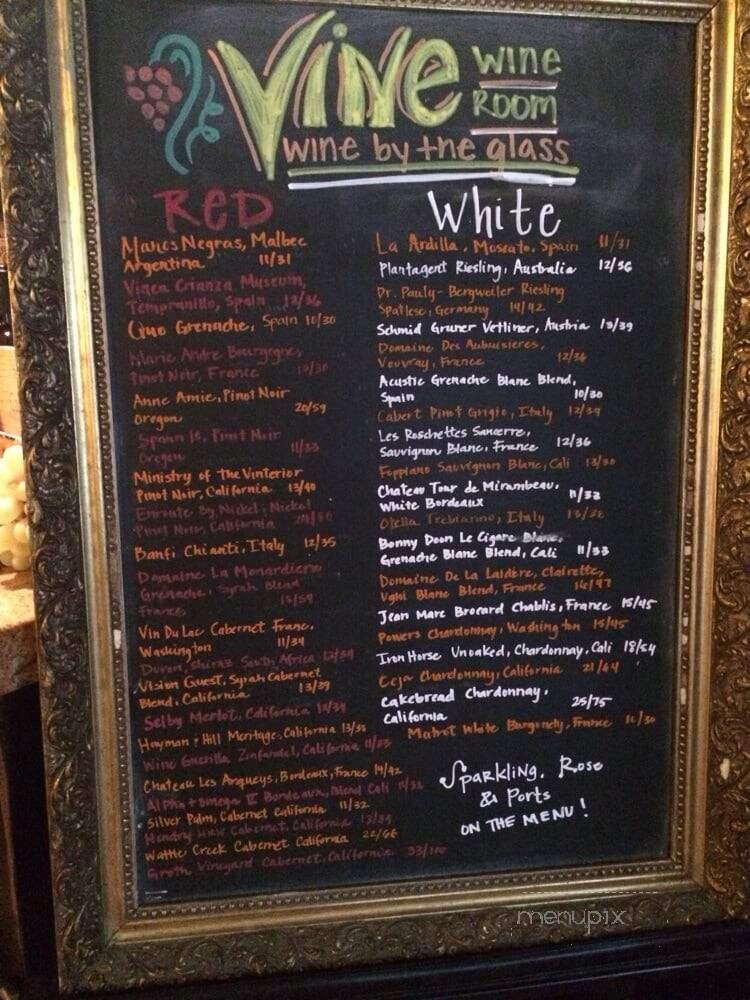 Vine
Wine
Room
Wine by the glass
Red
Manos Negras, Malbec
Argentina 11/31
Vinea Crianza Museum,
Tempranillo, Spain 12/36
Quo Grenache, Spain 10/30
Marie Andre Bourgogne,
Pinot Noir, France 10/30
Anne Amie, Pinot Noir
Oregon 20/59
Pinot Noir
Oregon 11/33
Ministry of the Vinterior
Pinot Noir, California 13/40
Enroute By Nickel; Nickel
Pinot Noir, California
Banfi Chianti, Italy 12/35
Domaine La Monardiere
Grenache, Syrah Blend
France
Vin Du Lac Cabernet Franc,
Washington 11/34
Shiraz South Africa
Vision Quest, Syrah Cabernet
Blend, California 13/39
Selby Merlot, California
Heyman + Hill Meritage, California 13/38
Wine Guerilla Zinfandel, California 11/33
Chateau Les Arqueys, Bordeaux, France 14/42
Alpha + Omega II Bordeaux, Blend Cali
Silver Palm, Cabernet California 11/32
Cabernet, California 13/39
Wattle Creek Cabernet California 22/66
Groth Vineyard Cabernet, California 33/100
White
La Ardilla, Moscato, Spain 11/31
Plantagent Riesling, Australia 12/36
Dr. Pauly-Bergweiler Riesling
Spatlese, Germany 14/42
Schmid Gruner Vetliner, Austria 13/39
Domaine Des Aubuisieres,
Vouvray, France 12/36
Acustic Grenache Blanc Blend,
Spain 10/30
Cabert Pinot Grigio, Italy 12/34
Les Roschettes Sancerre,
Sauvignon Blanc, France 12/36
Foppiano Sauvignon Blanc, Cali 13/30
Chateau Tour de Mirambeau,
White Bordeaux 11/33
Otella Trebianno, Italy 13/38
Bonny Doon Le Cigare Blanc,
Grenache Blanc Blend, Cali 11/33
Domaine De La Laidere, Clairette,
Ugni Blanc Blend, France 16/47
Jean Marc Brocard Chablis, France 15/45
Powers Chardonnay, Washington 15/45
Iron Horse Unoaked, Chardonnay, Cali 18/54
Ceja Chardonnay, California 21/64
Cakebread Chardonnay,
California 25/75
White Burgundy, France 12/30
Sparkling, Rose
& Ports
on the menu!
menupix